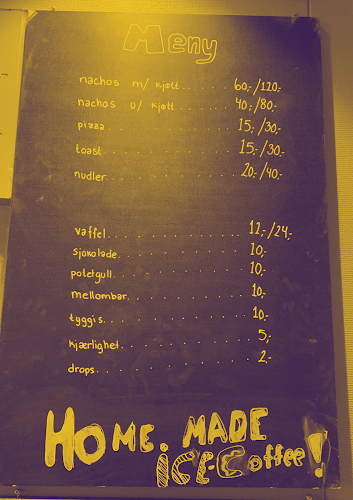 Meny
nachos m/ kjøtt...... 60,-/120,-
nachos u/ kjøtt...... 40,-/80,-
pizza............ 15,-/30,-
toast............ 15,-/30,-
nudler............ 20,-/40,-
vaffel............ 12,-/24,-
sjokolade............ 10,-
potetgull............ 10,-
mellombar............ 10,-
tyggis............ 10,-
kjærlighet............ 5,-
drops............ 2,-
HOME. MADE
ICE Coffee!